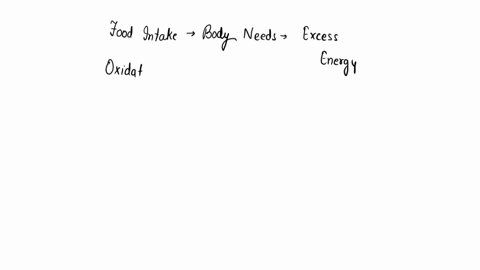 Food Intake → Body Needs → Excess
Energy
Oxidat